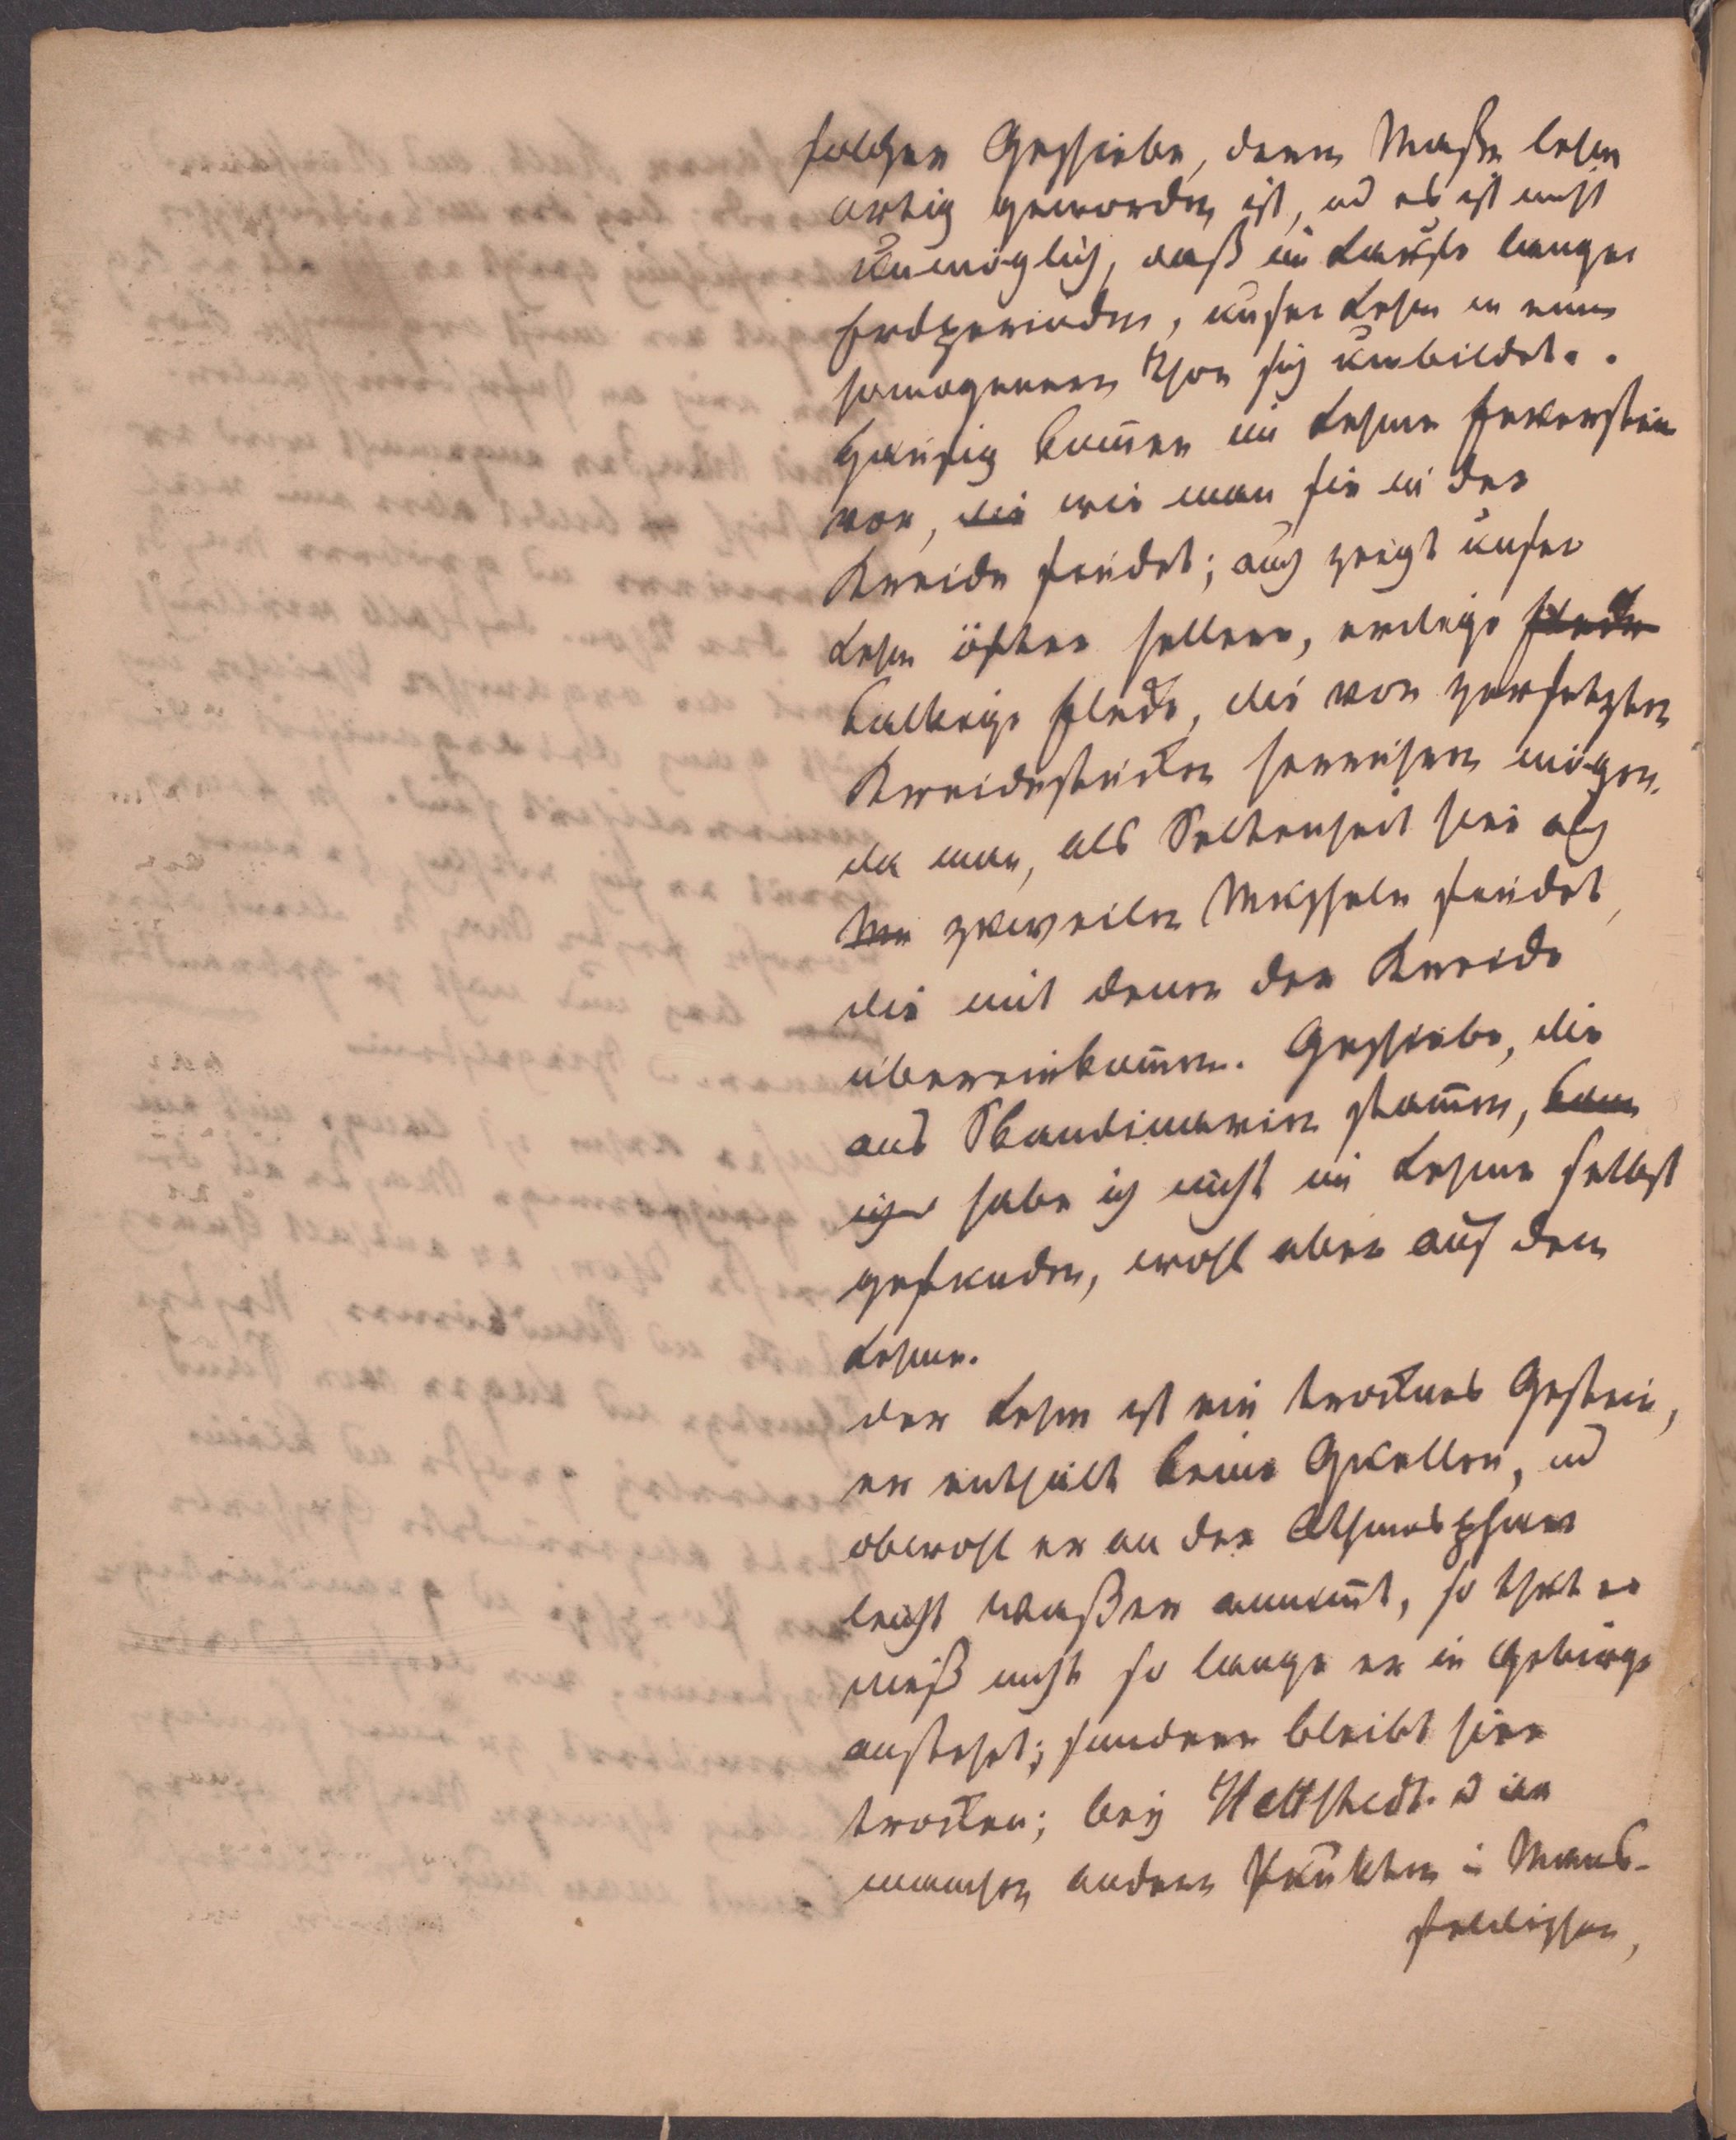 solcher Geschiebe, deren Maße lehm
artig geworden ist, ud es ist nicht
unmöglich, daß im Laufe langer
Erdperioden, unser Lehm in einen
homogenen Thon sich umbildet..
Häufig kom̄en im Lehme Feuersteine
vor, die wie man sie in der
Kreide findet; auch zeigt unser
Lehm öfter hellere, erdige Flecke
kalkige Flecke, die von zersetzten
Kreidestücken herrühren mögen,
da man, als Seltenheit hie auch
Mu zuweilen Muscheln findet,
die mit denen der Kreide
übereinkom̄en. Geschiebe, die
aus Skandinavien stam̄en, kann
ich habe ich nicht im Lehme selbst
gefunden, wohl aber auf dem
Lehme.
der Lehm ist ein trocknes Gestein,
er enthält keine Quellen, ud
obwohl er an der Athmosphäre
leicht Waßer annim̄t, so thut er
dieß nicht so lange er in Gebirge
ansteht; sondern bleibt hier
trocken; bey Hettstedt. u an
manchen andern Punkten i Mans-
feldischen,